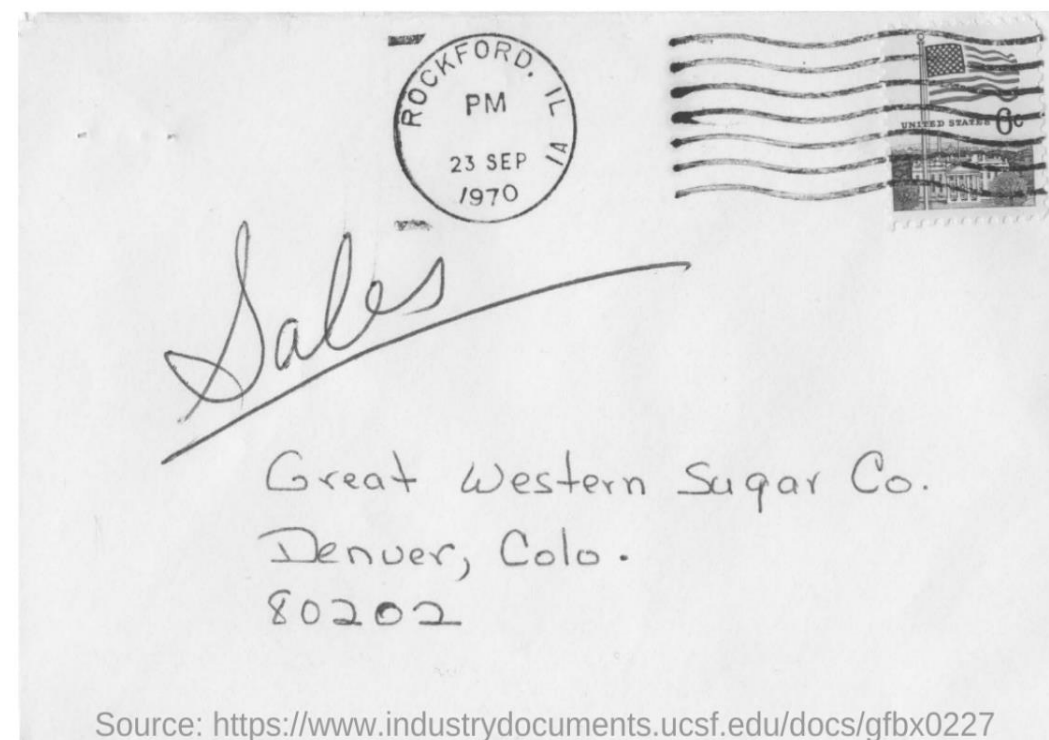 ROCKFORD, IL
PM
23 SEP
1970
1A
UNITED STATES 6c
Sales
Great Western Sugar Co.
Denver, Colo.
80202
Source: https://www.industrydocuments.ucsf.edu/docs/gfbx0227